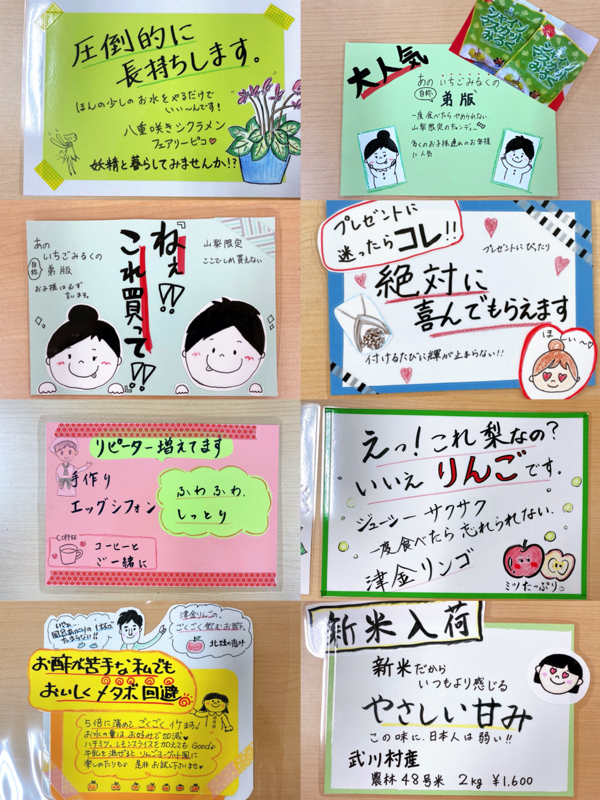 圧倒的に
長持ちします。
ほんの少しのお水をやるだけで
いい〜んです!
八重咲きシクラメン
フェアリーピコ♥
妖精と暮らしてみませんか!?
大人気
あのいちごみるくの
自称 弟版
一度食べたらやめられない
山梨限定のキャンディー
多くのお子様連れのお客様
に人気
あの
いちごみるくの
自称 弟版
お子様は必ず
言います。
『ねぇ!!
これ買って!!』
山梨限定
ここでしか買えない
プレゼントに
迷ったらコレ!!
プレゼントにぴったり
絶対に
喜んでもらえます
付けるたびに輝が止まらない!!
ほーい〜
リピーター増えてます
手作り
エッグシフォン
ふわふわ、
しっとり
COFFEE
コーヒーと
ご一緒に
えっ!これ梨なの?
いいえりんごです。
ジューシーサクサク
一度食べたら忘れられない。
津金リンゴ
ミツたっぷり
津金りんごの、
ごくごく飲むお酢。
北杜の恵み
お酢が苦手な私でも
おいしくメタボ回避
5倍に薄めてごくごくイケます♪
お水の量はお好みで加減♥
ハチミツ、レモンスライスを加えてもGood♪
牛乳を混ぜるとリンゴヨーグルト風に
楽しめたりもっ 是非お試し下さいませ♥
新米入荷
新米だから
いつもより感じる
やさしい甘み
この味に、日本人は弱い!!
武川村産
農林48号米 2kg ¥1.600